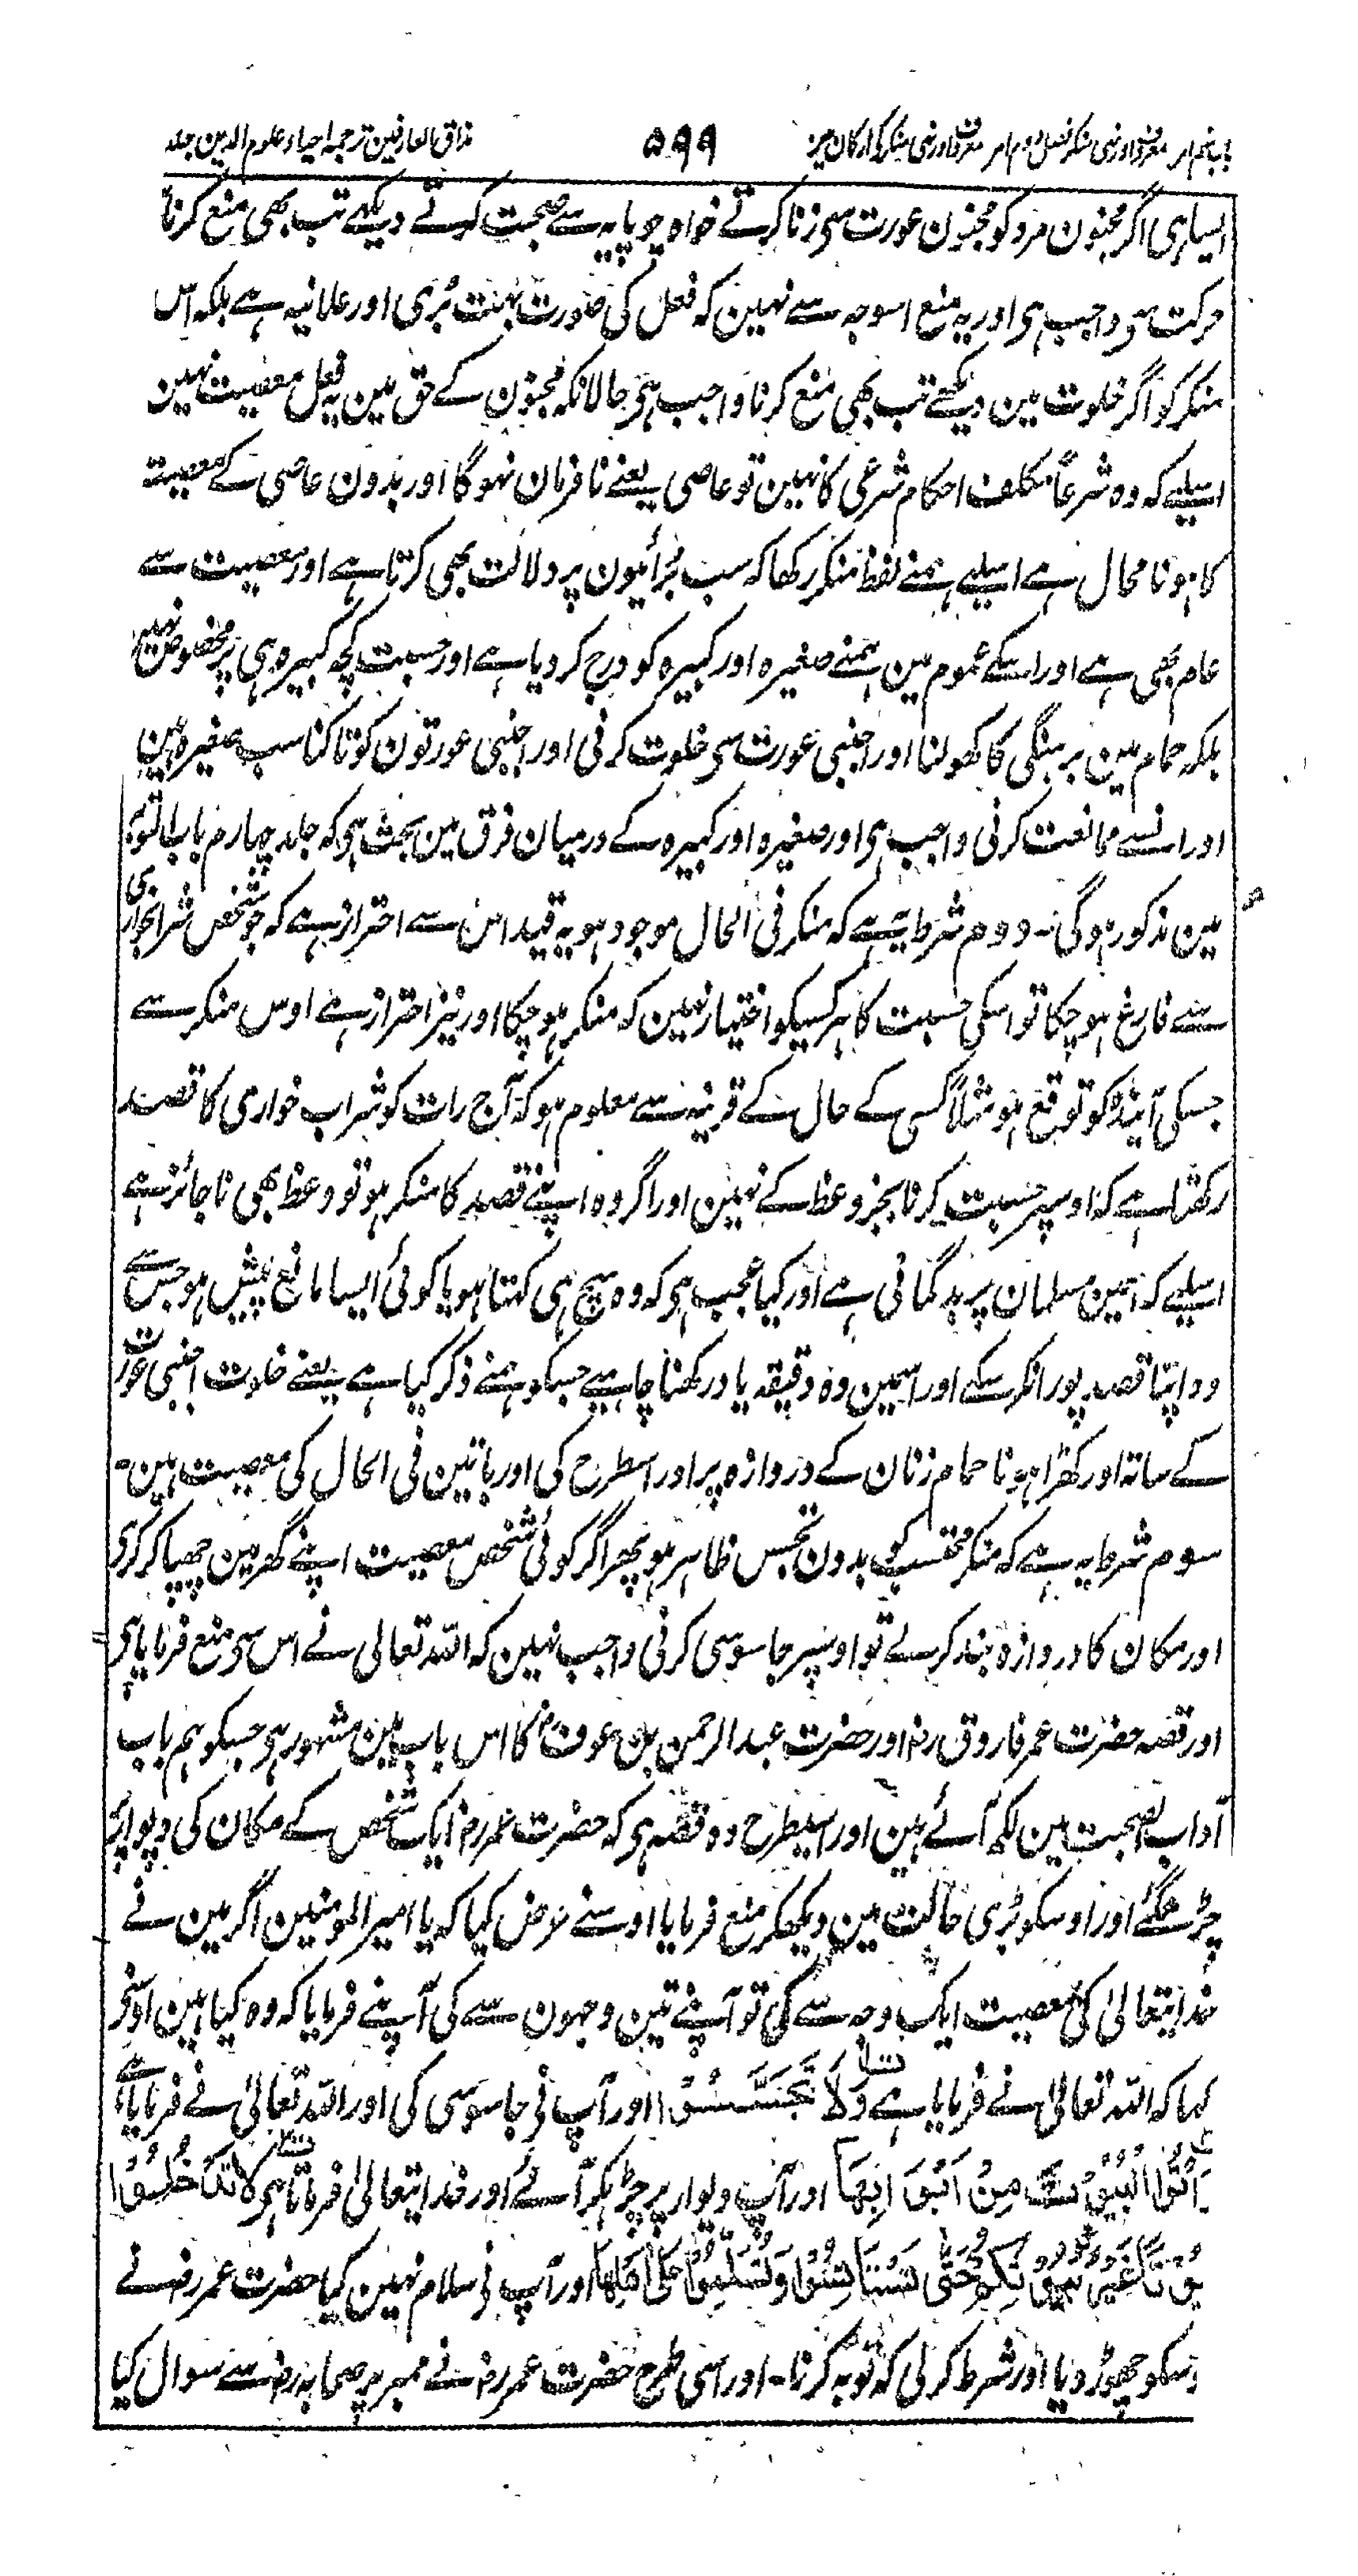 باب پنجم امر معروف اور نہی منکر فصل دوم امر معروف اور نہی منکر کے ارکان میں
۵۹۹
مذاق العارفین ترجمہ احیاء علوم الدین جلد
ایسا ہی اگر مجنون مرد کو مجنون عورت سی زنا کرتے خواہ چوپایہ سے صحبت کرتے دیکھے تب بھی منع کرنا
حرکت سی واجب ہی اور یہ منع اسوجہ سے نہین کہ فعل کی صورت بہت بُری اور علانیہ ہے بلکہ اس
منکر کو اگر خلوت مین دیکھے تب بھی منع کرنا واجب ہی حالانکہ مجنون کے حق مین یہ فعل معصیت نہین
اسلیے کہ وہ شرعاً مکلف احکام شرعی کا نہین تو عاصی یعنے نافرمان نہوگا اور بدون عاصی کے معصیت
کا ہونا محال ہے اسلیے ہمنے لفظ منکر رکھا کہ سب بُرائیون پر دلالت بھی کرتا ہے اور معصیت سے
عام بھی ہے اور اسکے عموم مین ہمنے صغیرہ اور کبیرہ کو درج کر دیا ہے اور حسبت کچھ کبیرہ ہی پر مخصوص نہین
بلکہ حمام مین برہنگی کا کھولنا اور اجنبی عورت سی خلوت کرنی اور اجنبی عورتون کو تاکنا سب صغیرہ ہین
اور انسے ممانعت کرنی واجب ہی اور صغیرہ اور کبیرہ کے درمیان فرق مین بحث ہی کہ جلد چہارم باب التوبہ
مین مذکور ہوگی ۔ دوم شرط یہ ہے کہ منکر فی الحال موجود ہو یہ قید اس سے احتراز ہے کہ جو شخص شرابخواری
سے فارغ ہوچکا تو اسکی حسبت کا ہر کسیکو اختیار نہین کہ منکر ہوچکا اور نیز احتراز ہے اوس منکر سے
جسکی آیندہ کو توقع ہو مثلاً کسی کے حال کے قرینہ سے معلوم ہو کہ آج رات کو شراب خواری کا قصد
رکھتا ہے کہ اوسپر حسبت کرنا بجز وعظ کے نہین اور اگر وہ اپنے قصد کا منکر ہو تو وعظ بھی ناجائز ہے
اسلیے کہ اسمین مسلمان پر بدگمانی ہے اور کیا عجب ہی کہ وہ سچ ہی کہتا ہو یا کوئی ایسا مانع پیش ہو جس سے
وہ اپنا قصد پورا نکر سکے اور اسمین وہ دقیقہ یاد رکھنا چاہیے جسکو ہمنے ذکر کیا ہے یعنے خلوت اجنبی عورت
کے ساتہ اور کھڑا ہونا حمام زنان کے دروازہ پر اور اسطرح کی اور باتین فی الحال کی معصیت ہین ۔
سوم شرط یہ ہے کہ منکر محتسب کو بدون تجسس ظاہر ہو پھر اگر کوئی شخص معصیت اپنے گھر مین چھپا کر کری
اور مکان کا دروازہ بند کر لے تو اوسپر جاسوسی کرنی واجب نہین کہ اللہ تعالی نے اس سی منع فرمایا ہی
اور قصہ حضرت عمر فاروق رض اور حضرت عبد الرحمن بن عوف کا اس باب مین مشہور ہی جسکو ہم باب
آداب الصحبت مین لکھ آئے ہین اور اسیطرح وہ قصہ ہی کہ حضرت عمر رض ایک شخص کے مکان کی دیوار پر
چڑھ گئے اور اوسکو بُری حالت مین دیکھکر منع فرمایا اوسنے عرض کیا کہ یا امیر المومنین اگر مین نے
خدایتعالیٰ کی معصیت ایک وجہ سے کی تو آپنے تین وجہون سے کی آپنے فرمایا کہ وہ کیا ہین اوسنے
کہا کہ اللہ تعالیٰ نے فرمایا ہے وَلَا تَجَسَّسُوْا اور آپ نی جاسوسی کی اور اللہ تعالیٰ نے فرمایا ہے
وَاْتُوا الْبُيُوْتَ مِنْ اَبْوَابِهَا اور آپ دیوار پر چڑہکر آئے اور خدایتعالیٰ فرماتا ہی لَا تَدْخُلُوْا
بُيُوْتًا غَيْرَ بُيُوْتِكُمْ حَتّٰى تَسْتَاْنِسُوْا وَتُسَلِّمُوْا عَلٰى اَهْلِهَا اور آپ نی سلام نہین کیا حضرت عمر رض نے
اسکو چھوڑ دیا اور شرط کر لی کہ توبہ کرنا ۔ اور اسی طرح حضرت عمر رض نے ممبر پر صحابہ رض سے سوال کیا